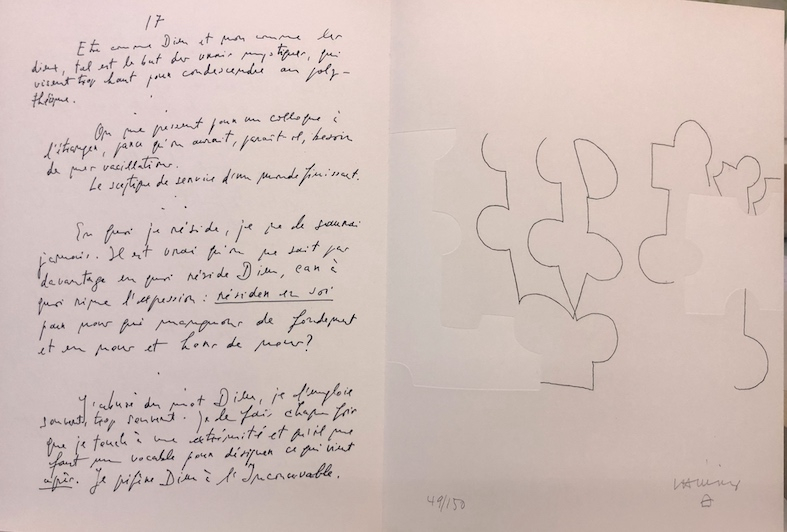 17
Etre comme Dieu et non comme les
dieux, tel est le but des vrais mystiques, qui
visent trop haut pour condescendre au poly-
théisme.
On me pressent pour un colloque à
l'étranger, parce qu'on aurait, paraît-il, besoin
de mes vacillations.
Le sceptique de service d'un monde finissant.
En quoi je réside, je ne le saurai
jamais. Il est vrai qu'on ne sait pas
davantage en quoi réside Dieu, car à
quoi rime l'expression : résider en soi
pour nous qui manquons de fondement
et en nous et hors de nous?
J'abuse du mot Dieu, je l'emploie
souvent, trop souvent. Je le fais chaque fois
que je touche à une extrémité et qu'il me
faut un vocable pour désigner ce qui vient
après. Je préfère Dieu à l'Inconcevable.
49/150